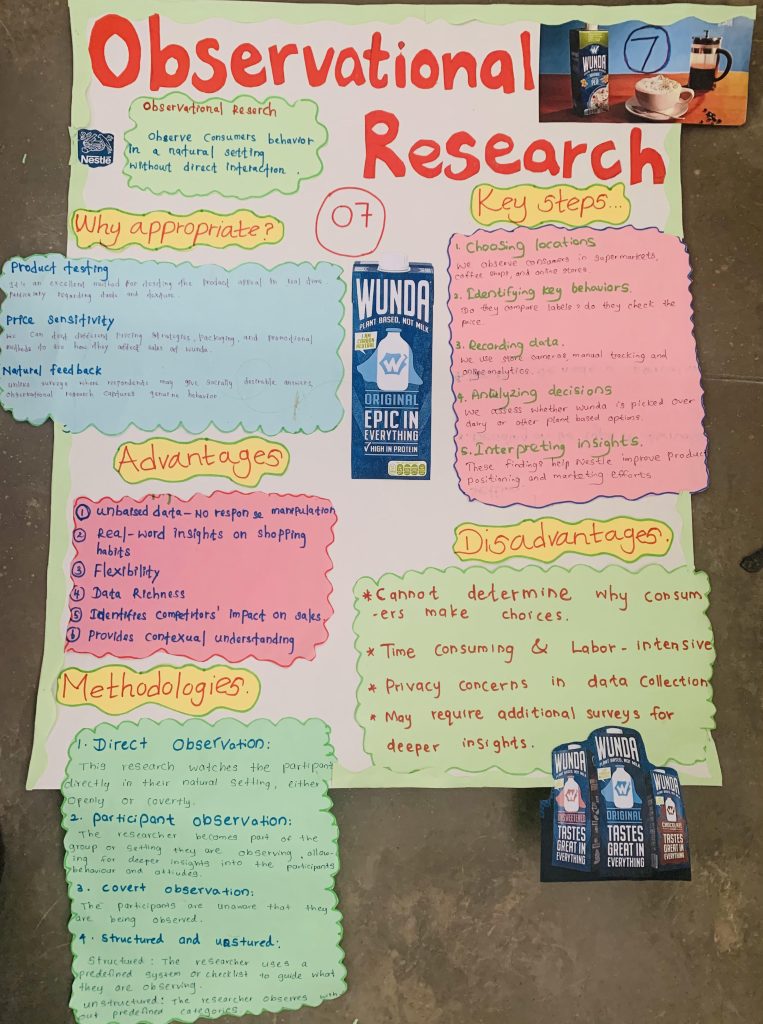 Observational
Research
7
WUNDA
Observational Reserch
Observe Consumers behavior
in a natural setting
without direct interaction.
Nestlé
07
Why appropriate?
Product testing
It is an excellent method for testing the product appeal in real time
particularly regarding taste and texture.
Price sensitivity
We can test different pricing strategies, packaging, and promotional
methods to see how they affect sales of wunda.
Natural feedback
unlike surveys where respondents may give socially desirable answers,
observational research captures genuine behavior
Key steps...
1. Choosing locations
We observe consumers in supermarkets,
coffee shops, and online stores.
2. Identifying key behaviors.
Do they compare labels? do they check the
price.
3. Recording data.
We use store cameras, manual tracking and
analytics.
4. Analyzing decisions
We assess whether wunda is picked over
dairy or other plant based options.
5. Interpreting insights.
These findings help Nestle improve product
positioning and marketing efforts.
WUNDA
PLANT BASED, NOT MILK
I AM
CARBON
NEUTRAL
W
ORIGINAL
EPIC IN
EVERYTHING
HIGH IN PROTEIN
Advantages
1 unbaised data - No response manipulation
2 Real-word insights on shopping
habits
3 Flexibility
4 Data Richness
5 Identifies competitors' impact on sales.
6 Provides contexual understanding
Disadvantages.
* Cannot determine why consum
-ers make choices.
* Time consuming & Labor-intensive
* Privacy concerns in data collection
* May require additional surveys for
deeper insights.
Methodologies.
1. Direct Observation:
This research watches the participant
directly in their natural setting, either
openly or covertly.
2. participant observation:
The researcher becomes part of the
group or setting they are observing, allow-
ing for deeper insights into the participants
behaviour and attitudes.
3. covert observation:
The participants are unaware that they
are being observed.
4. structured and unstured:
Structured: The researcher uses a
predefined system or checklist to guide what
they are observing.
unstructured: The researcher observes with
out predefined categories
WUNDA
PLANT BASED, NOT MILK
UNSWEETENED
TASTES
GREAT IN
EVERYTHING
WUNDA
PLANT BASED, NOT MILK
ORIGINAL
TASTES
GREAT IN
EVERYTHING
WUNDA
CHOCOLATE
TASTES
GREAT IN
EVERYTHING